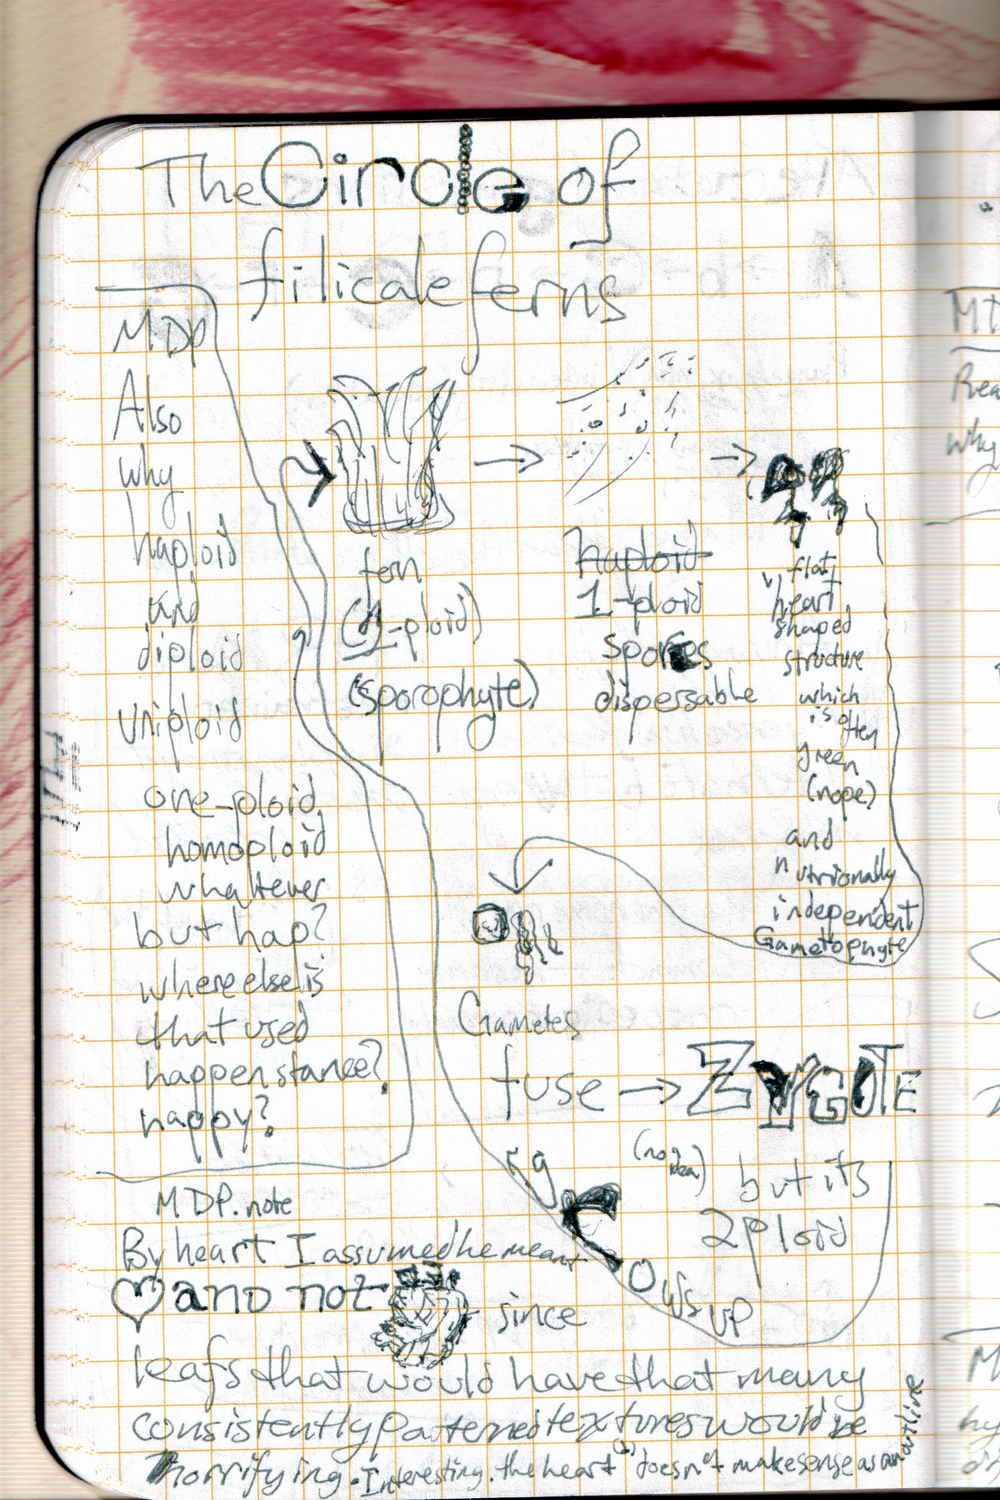 The Circle of
filicale ferns
MDP
Also
why
haploid
and
diploid
uniploid
one-ploid
homoploid
whatever
but hap?
where else is
that used
happenstance?
happy?
fern
(1-ploid)
(sporophyte)
haploid
1-ploid
spores
dispersable
flat,
"heart
shaped
structure
which
is often
green
(nope)
and
nutrionally
independent
Gametophyte
Gametes
fuse → ZYGOTE
(no idea)
but its
2ploid
grows up
MDP. note
By heart I assumed he meant
♡ and not
since
leafs that would have that many
consistently patterned textures would be
horrifying. Interesting. the heart (♡) doesn't make sense as an outline